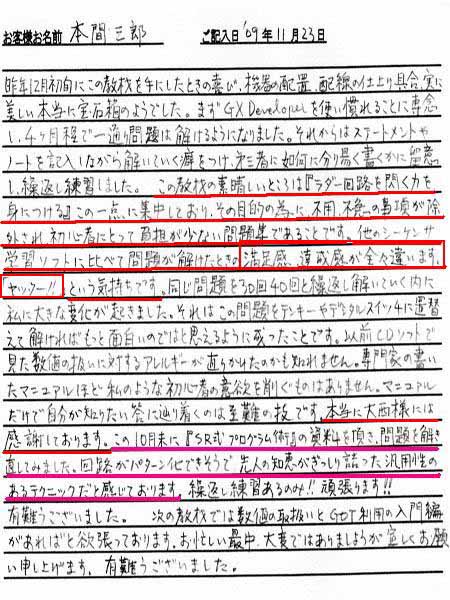 お客様お名前 本間三郎 ご記入日 '09年11月23日
昨年12月初旬にこの教材を手にしたときの喜び、機器の配置、配線の仕上り具合、実に
美しい本当に宝石箱のようでした。まずGX Developerを使い慣れることに専念
し、4ヶ月程で一通り問題は解けるようになりました。それからはステートメントや
ノートを記入しながら解いていく癖をつけ、第三者に如何に分り易く書くかに留意
し、繰返し練習しました。この教材の素晴しいところは『ラダー回路を閃く力を
身につける』この一点に集中しており、その目的の為に、不用、不急の事項が除
外され、初心者にとって負担が少ない問題集であることです。他のシーケンサ
学習ソフトに比べて問題が解けたときの満足感、達成感が全々違います。
ヤッター!! という気持ちです。同じ問題を30回40回と繰返し解いていく内に
私に大きな変化が起きました。それはこの問題をテンキーやデジタルスイッチに置替
えて解ければもっと面白いのではと思えるように成ったことです。以前CDソフトで
見た数値の扱いに対するアレルギーが直りかけたのかも知れません。専門家の書い
たマニュアルほど私のような初心者の意欲を削ぐものはありません。マニュアル
だけで自分が知りたい答に辿り着くのは至難の技です。本当に大西様には
感謝しております。この10月末に『SR式プログラム術』の資料も頂き、問題を解き
直してみました。回路がパターン化できそうで先人の知恵がぎっしり詰った汎用性の
あるテクニックだと感じております。繰返し練習あるのみ!! 頑張ります!!
有難うございました。 次の教材では数値の取扱いとGOT利用の入門編
があればと欲張っております。お忙しい最中、大変ではありましょうが宜しくお願
い申し上げます。有難うございました。